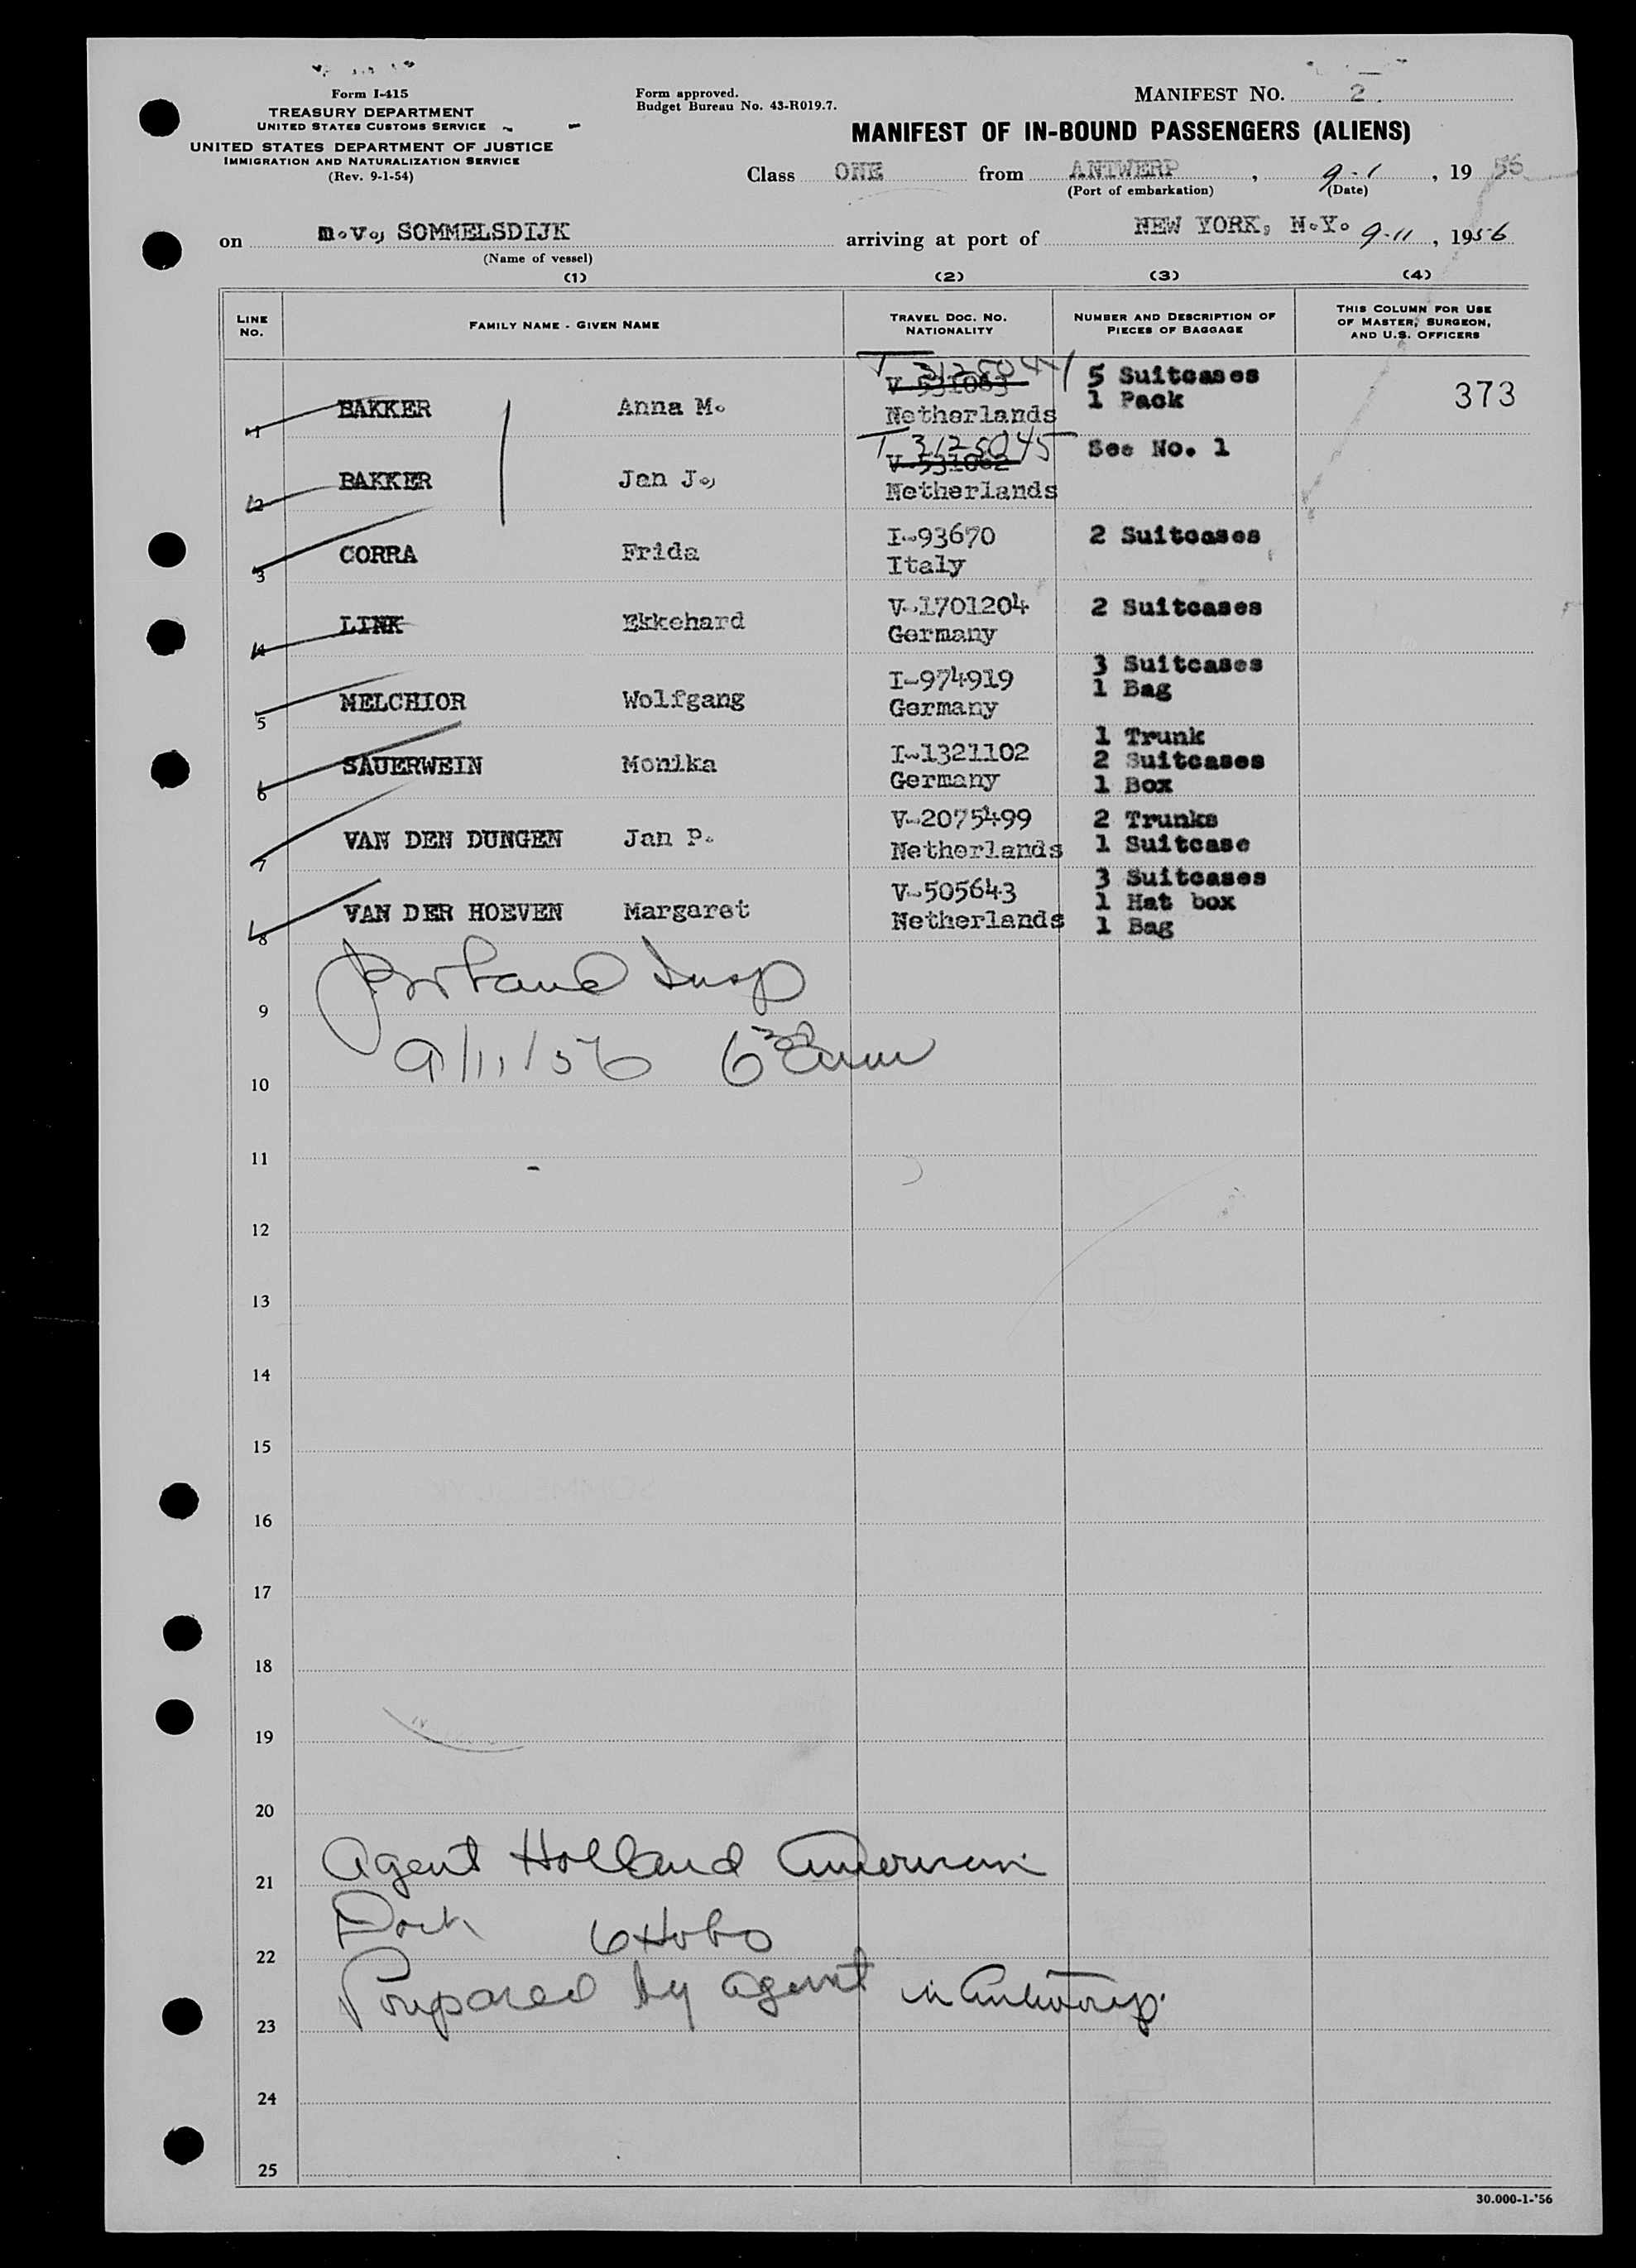 Form I-415
TREASURY DEPARTMENT
UNITED STATES CUSTOMS SERVICE
UNITED STATES DEPARTMENT OF JUSTICE
IMMIGRATION AND NATURALIZATION SERVICE
(Rev. 9-1-54)
Form approved.
Budget Bureau No. 43-R019.7.
MANIFEST NO. 2.
MANIFEST OF IN-BOUND PASSENGERS (ALIENS)
Class ONE from ANTWERP, 9-1, 1956
(Port of embarkation) (Date)
on m.v. SOMMELSDIJK arriving at port of NEW YORK, N.Y. 9-11, 1956
(Name of vessel)
(1) (2) (3) (4)
LINE NO. FAMILY NAME - GIVEN NAME TRAVEL DOC. NO. NATIONALITY NUMBER AND DESCRIPTION OF PIECES OF BAGGAGE THIS COLUMN FOR USE OF MASTER, SURGEON, AND U.S. OFFICERS
T 3125044
V-531063 5 Suitcases
1 BAKKER Anna M. Netherlands 1 Pack 373
T 3125045
V-531062 See No. 1
2 BAKKER Jan J. Netherlands
I-93670 2 Suitcases
3 CORRA Frida Italy
V-1701204 2 Suitcases
4 LINK Ekkehard Germany
I-974919 3 Suitcases
5 MELCHIOR Wolfgang Germany 1 Bag
1 Trunk
I-1321102 2 Suitcases
6 SAUERWEIN Monika Germany 1 Box
V-2075499 2 Trunks
7 VAN DEN DUNGEN Jan P. Netherlands 1 Suitcase
3 Suitcases
V-505643 1 Hat box
8 VAN DER HOEVEN Margaret Netherlands 1 Bag
Insp
9
9/11/56 6
10
11
12
13
14
15
16
17
18
19
20
Agent Holland American
21
22
Prepared by agent in Antwerp.
23
24
25
30.000-1-'56